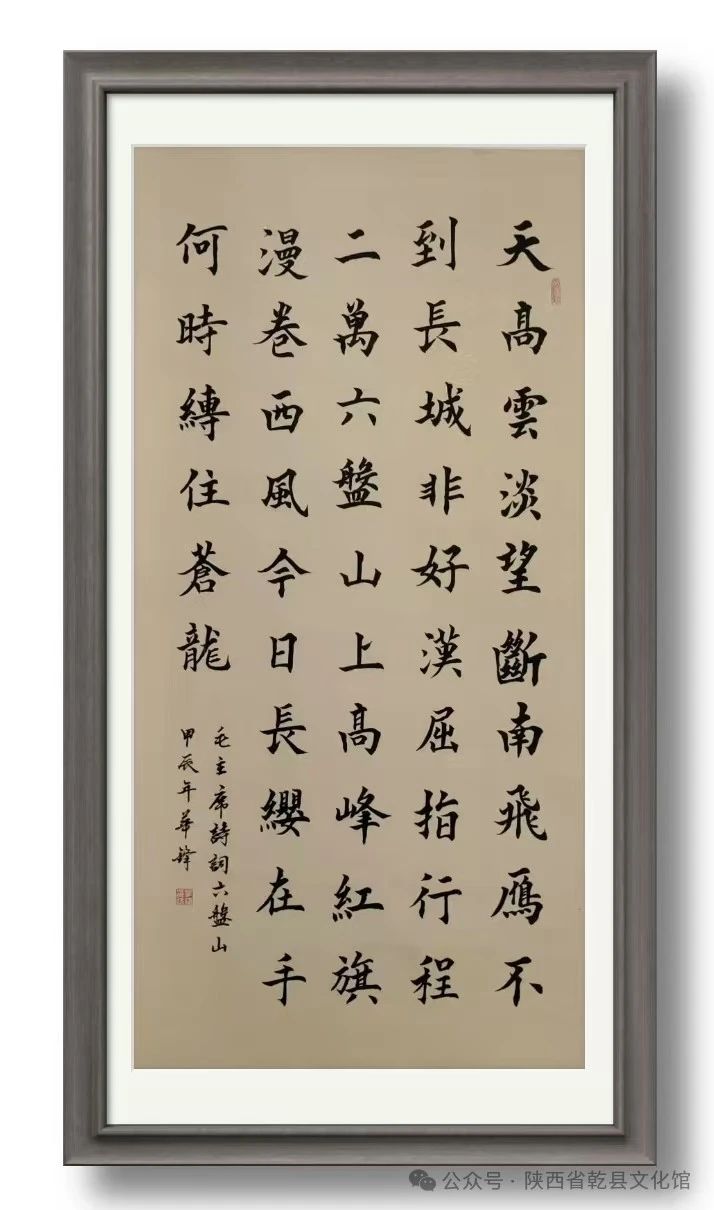 天高雲淡望斷南飛鴈不
到長城非好漢屈指行程
二萬六盤山上高峰紅旗
漫卷西風今日長纓在手
何時縛住蒼龍
毛主席詩詞六盤山
甲辰年華鋒
公众号·陕西省乾县文化馆